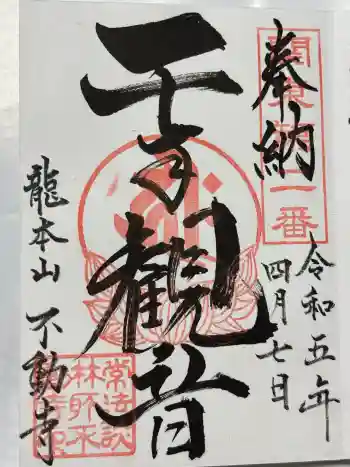 奉納
関東 一番
令和五年
四月七日
千手觀音
龍本山 不動寺
常法談